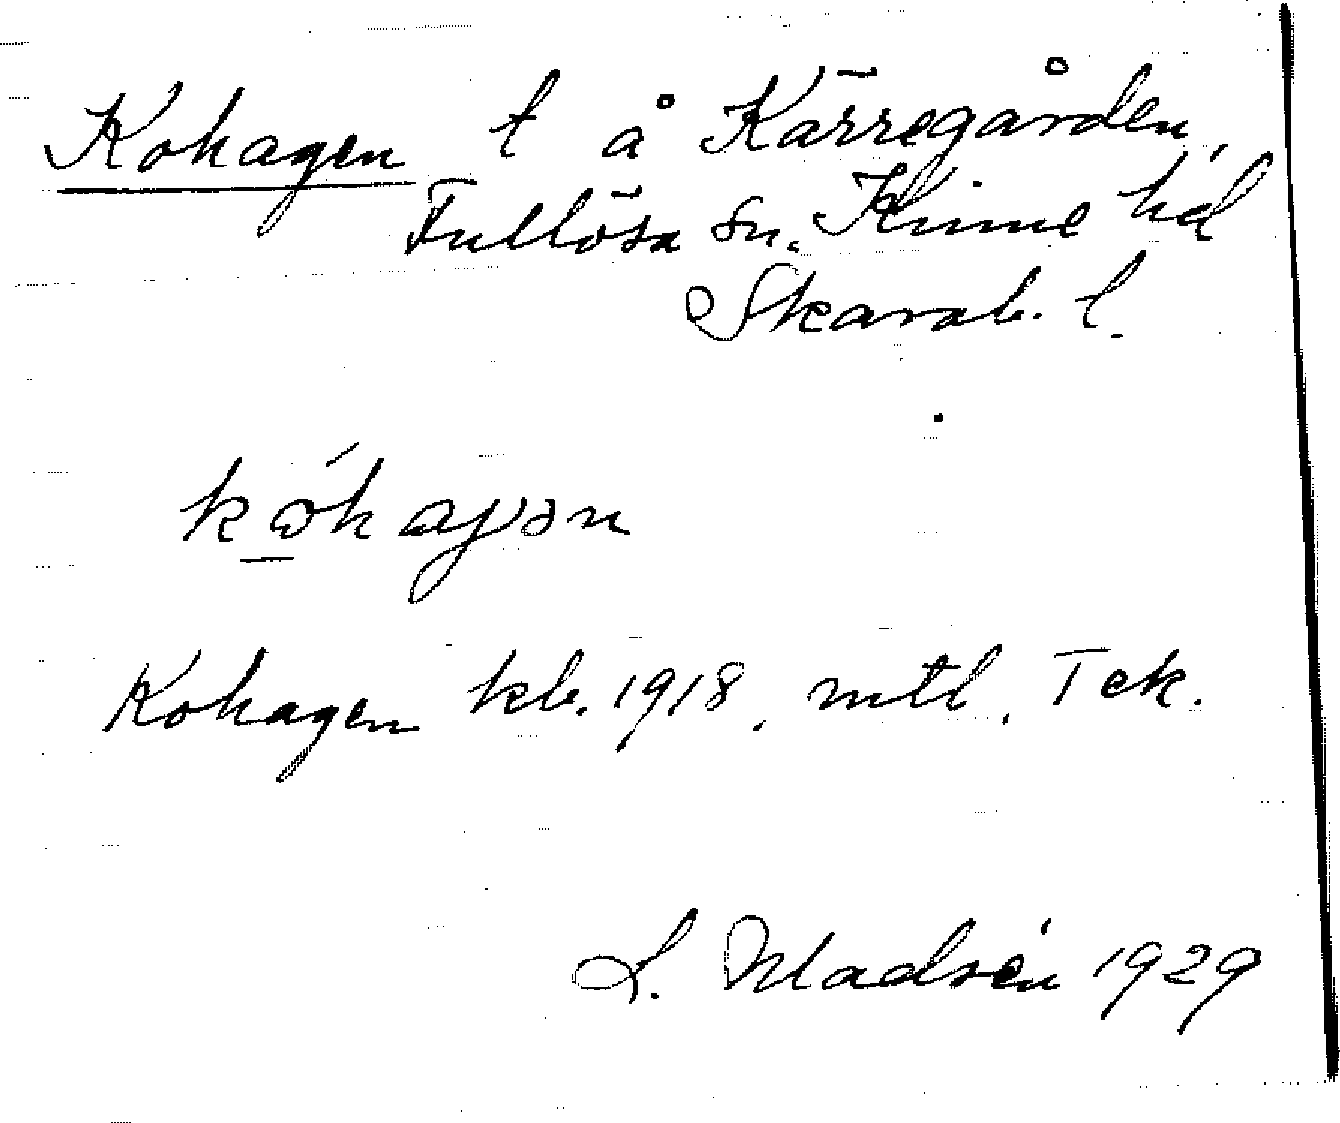 Kohagen t å Kärregården,
Fullösa sn. Kinne hd
Skarab. l.
Kohagen kb. 1918, mtl, Tck.
L. Madsén 1929